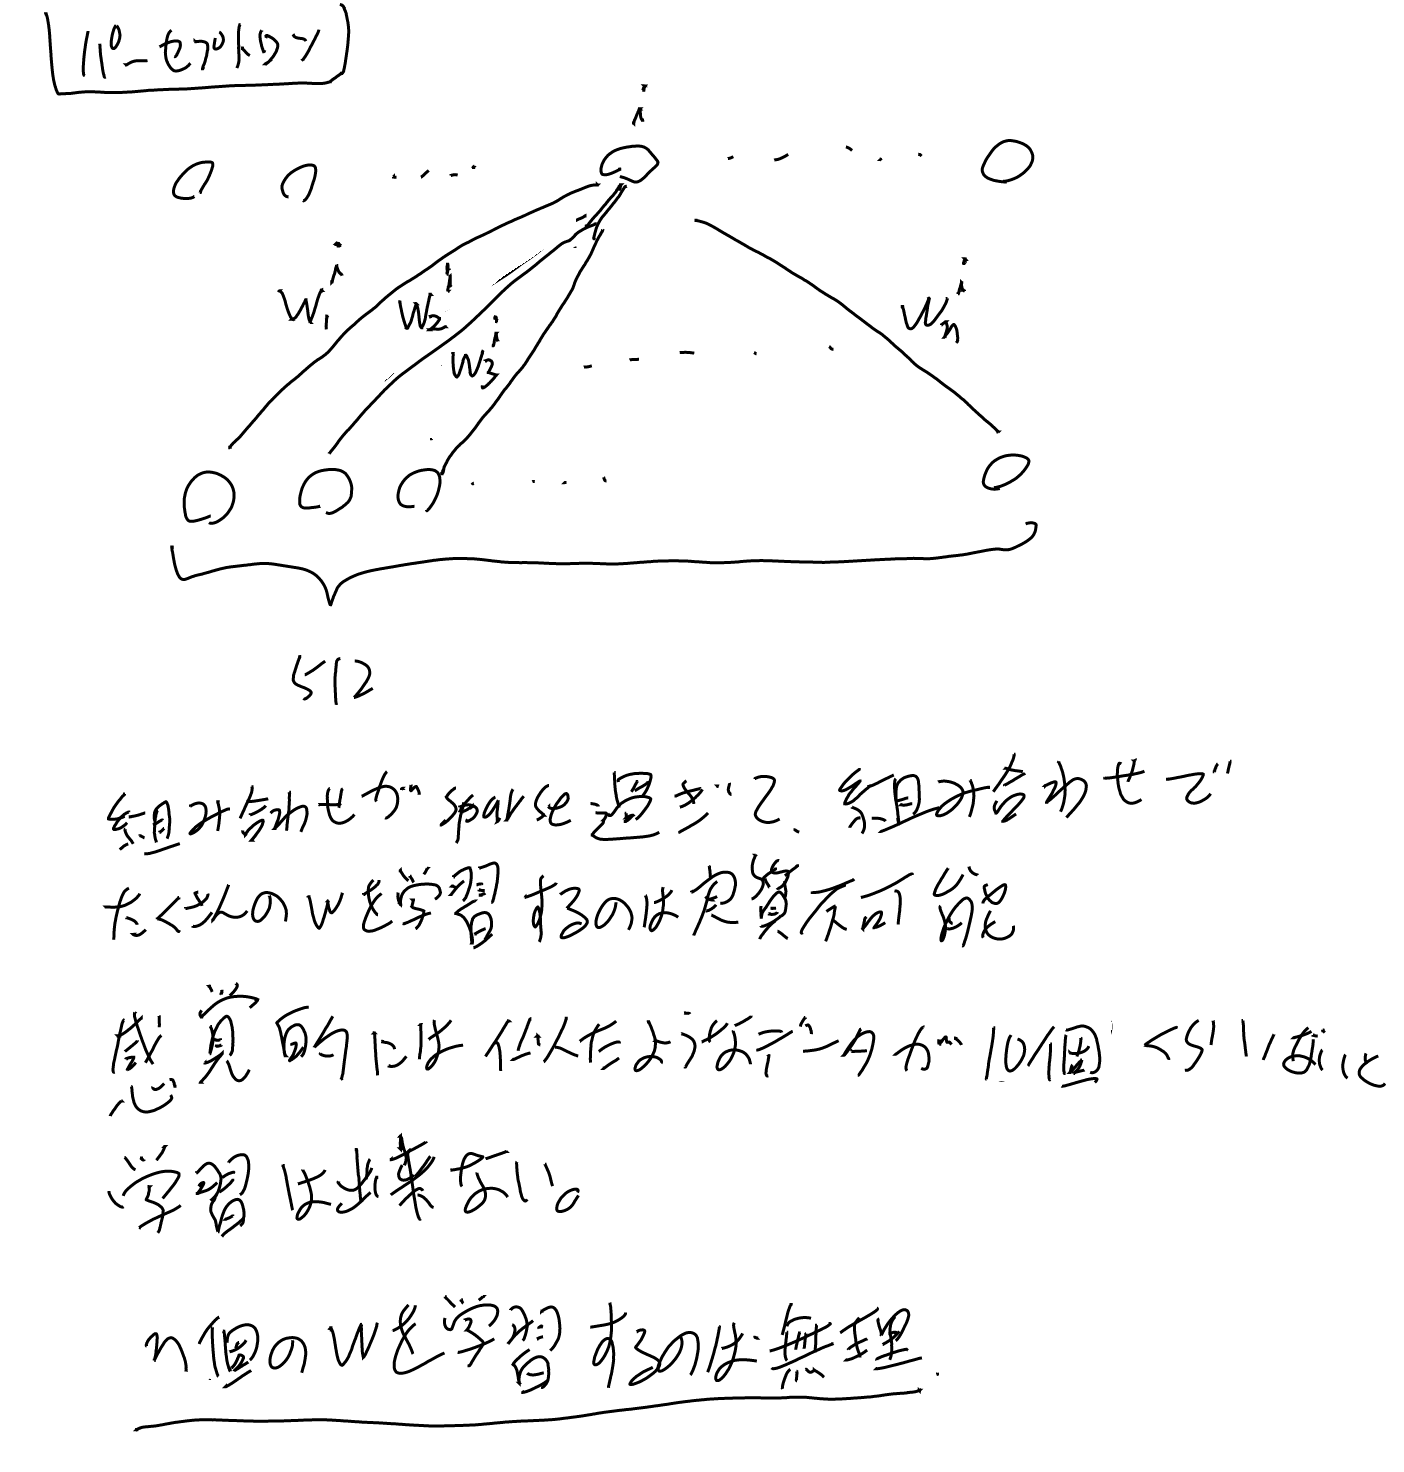 パーセプトロン
i
w₁ⁱ w₂ⁱ w₃ⁱ wₙⁱ
512
組み合わせがsparse過ぎて、組み合わせで
たくさんのwを学習するのは実質不可能
感覚的には似たようなデータが10個くらいないと
学習は出来ない。
n個のwを学習するのは無理.